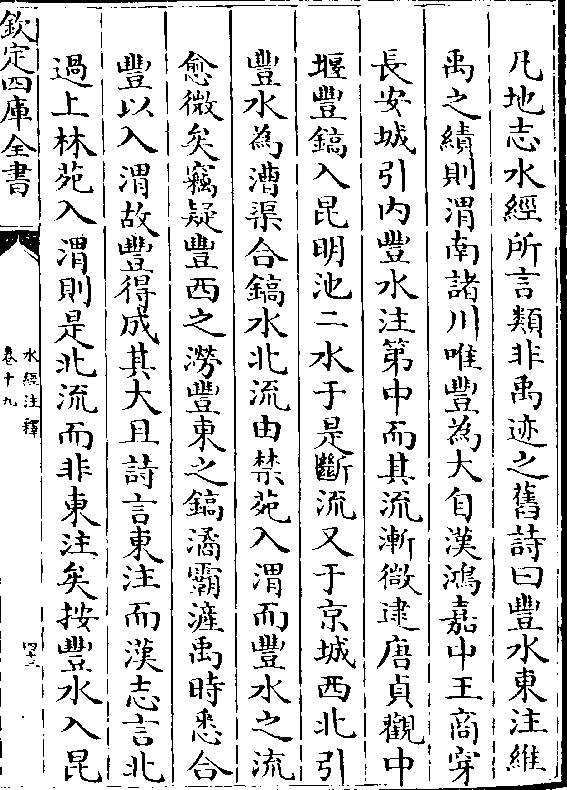 凡地志水經所言類非禹迹之舊詩曰豐水東注維
禹之績則渭南諸川唯豐為大自漢鴻嘉中王商穿
長安城引内豐水注第中而其流漸微逮唐貞觀中
堰豐鎬入昆明池二水于是斷流又于京城西北引
豐水為漕渠合鎬水北流由禁苑入渭而豐水之流
愈微矣竊疑豐西之澇豐東之鎬潏霸滻禹時悉合
豐以入渭故豐得成其大且詩言東注而漢志言北
過上林苑入渭則是北流而非東注矣按豐水入昆
欽定四庫全書
水經注釋
卷十九